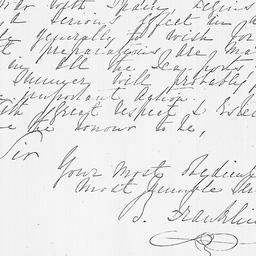 War with Spain, begins
a serious Effect in
generally to wish for
preparations are ma
in all the Sea ports
Summer will probably
important Action.
great respect I
the honour to be,
Sir
Your most Obedient
most humble Ser
B. Franklin